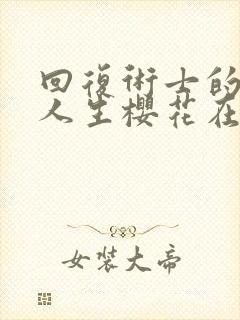 回復術士的
人生櫻花在
女裝大帝